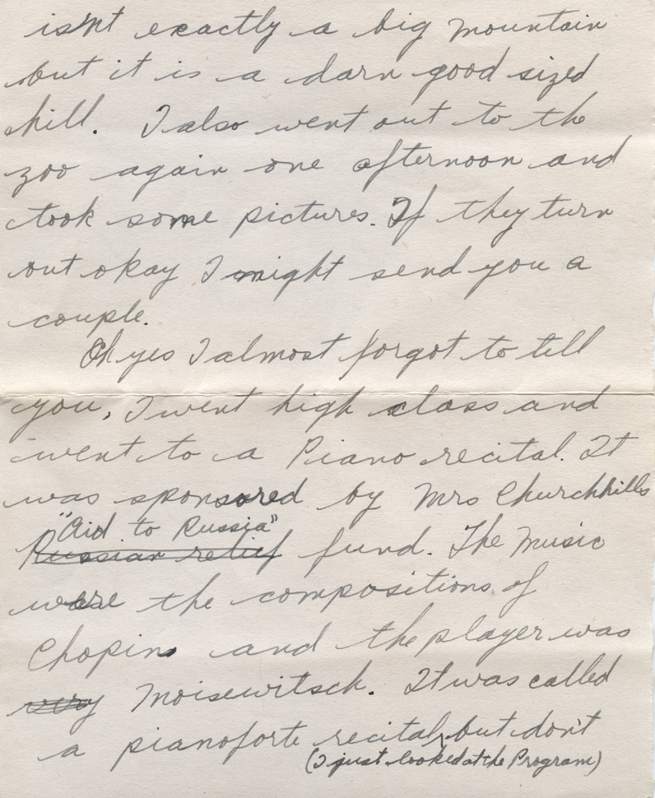 isn't exactly a big mountain
but it is a darn good sized
hill. I also went out to the
zoo again one afternoon and
took some pictures. If they turn
out okay I might send you a
couple.
Oh yes I almost forgot to tell
you, I went high class and
went to a Piano recital. It
was sponsored by Mrs Churchhills
"Aid to Russia"
Russian relief fund. The Music
were the compositions of
Chopin and the player was
very Moisewitsch. It was called
a pianoforte recital, but don't
(I just looked at the Program)